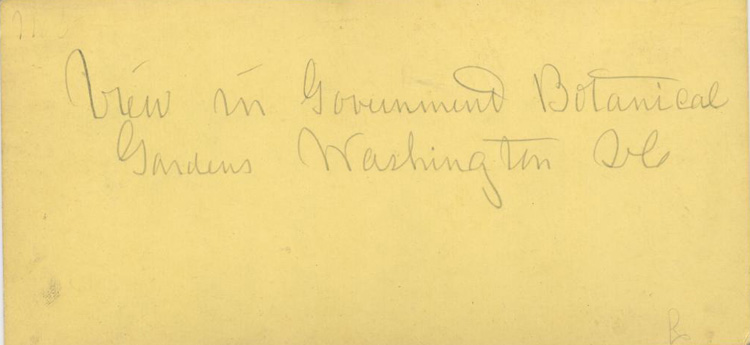 View in Government Botanical
Gardens Washington DC